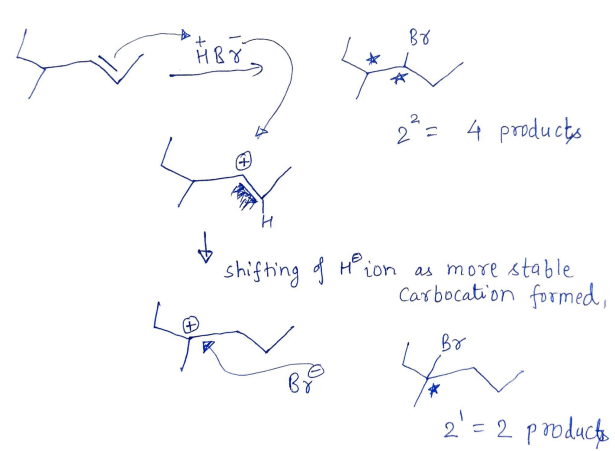 Br
+ -
HBr
2² = 4 products
⊕
H
shifting of H⊖ ion as more stable
carbocation formed,
⊕
Br
Br⊖
2¹ = 2 products